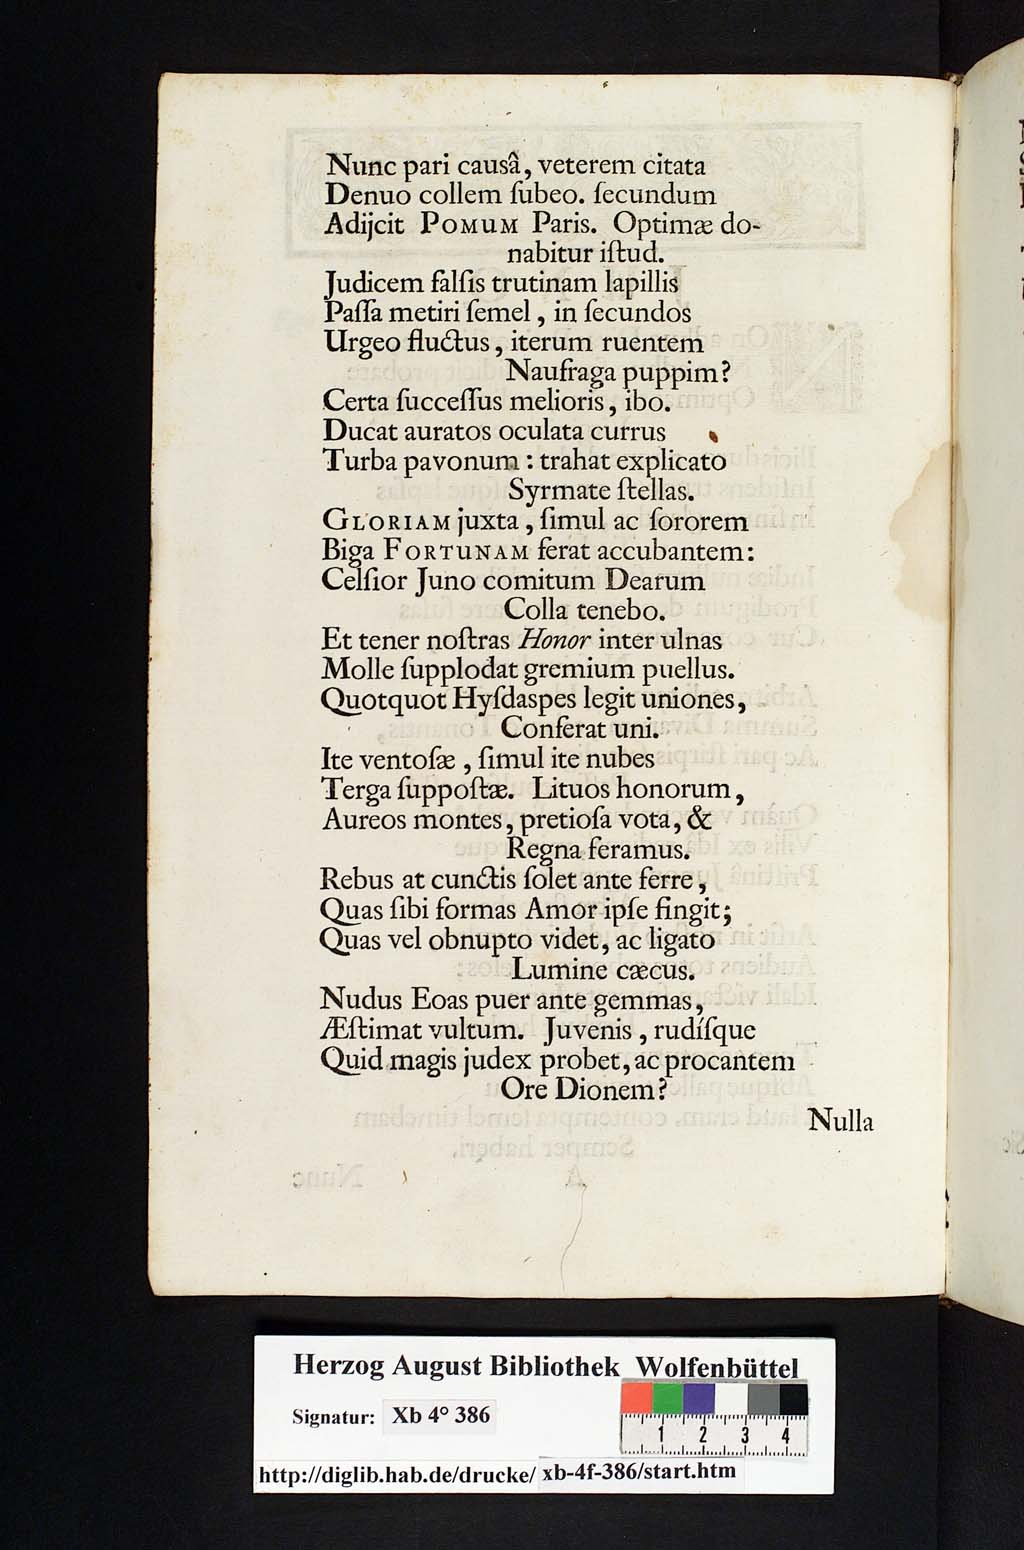 Nunc pari causâ, veterem citata
Denuo collem ſubeo. ſecundum
Adijcit POMUM Paris. Optimæ do-
nabitur iſtud.
Judicem falſis trutinam lapillis
Paſſa metiri ſemel, in ſecundos
Urgeo fluctus, iterum ruentem
Naufraga puppim?
Certa ſucceſſus melioris, ibo.
Ducat auratos oculata currus
Turba pavonum: trahat explicato
Syrmate ſtellas.
GLORIAM juxta, ſimul ac ſororem
Biga FORTUNAM ferat accubantem:
Celſior Juno comitum Dearum
Colla tenebo.
Et tener noſtras Honor inter ulnas
Molle ſupplodat gremium puellus.
Quotquot Hyſdaspes legit uniones,
Conferat uni.
Ite ventoſæ, ſimul ite nubes
Terga ſuppoſtæ. Lituos honorum,
Aureos montes, pretioſa vota, &
Regna feramus.
Rebus at cunctis ſolet ante ferre,
Quas ſibi formas Amor ipſe fingit;
Quas vel obnupto videt, ac ligato
Lumine cæcus.
Nudus Eoas puer ante gemmas,
Æſtimat vultum. Juvenis, rudíſque
Quid magis judex probet, ac procantem
Ore Dionem?
Nulla
Herzog August Bibliothek Wolfenbüttel
Signatur: Xb 4° 386
1 2 3 4
http://diglib.hab.de/drucke/ xb-4f-386/start.htm